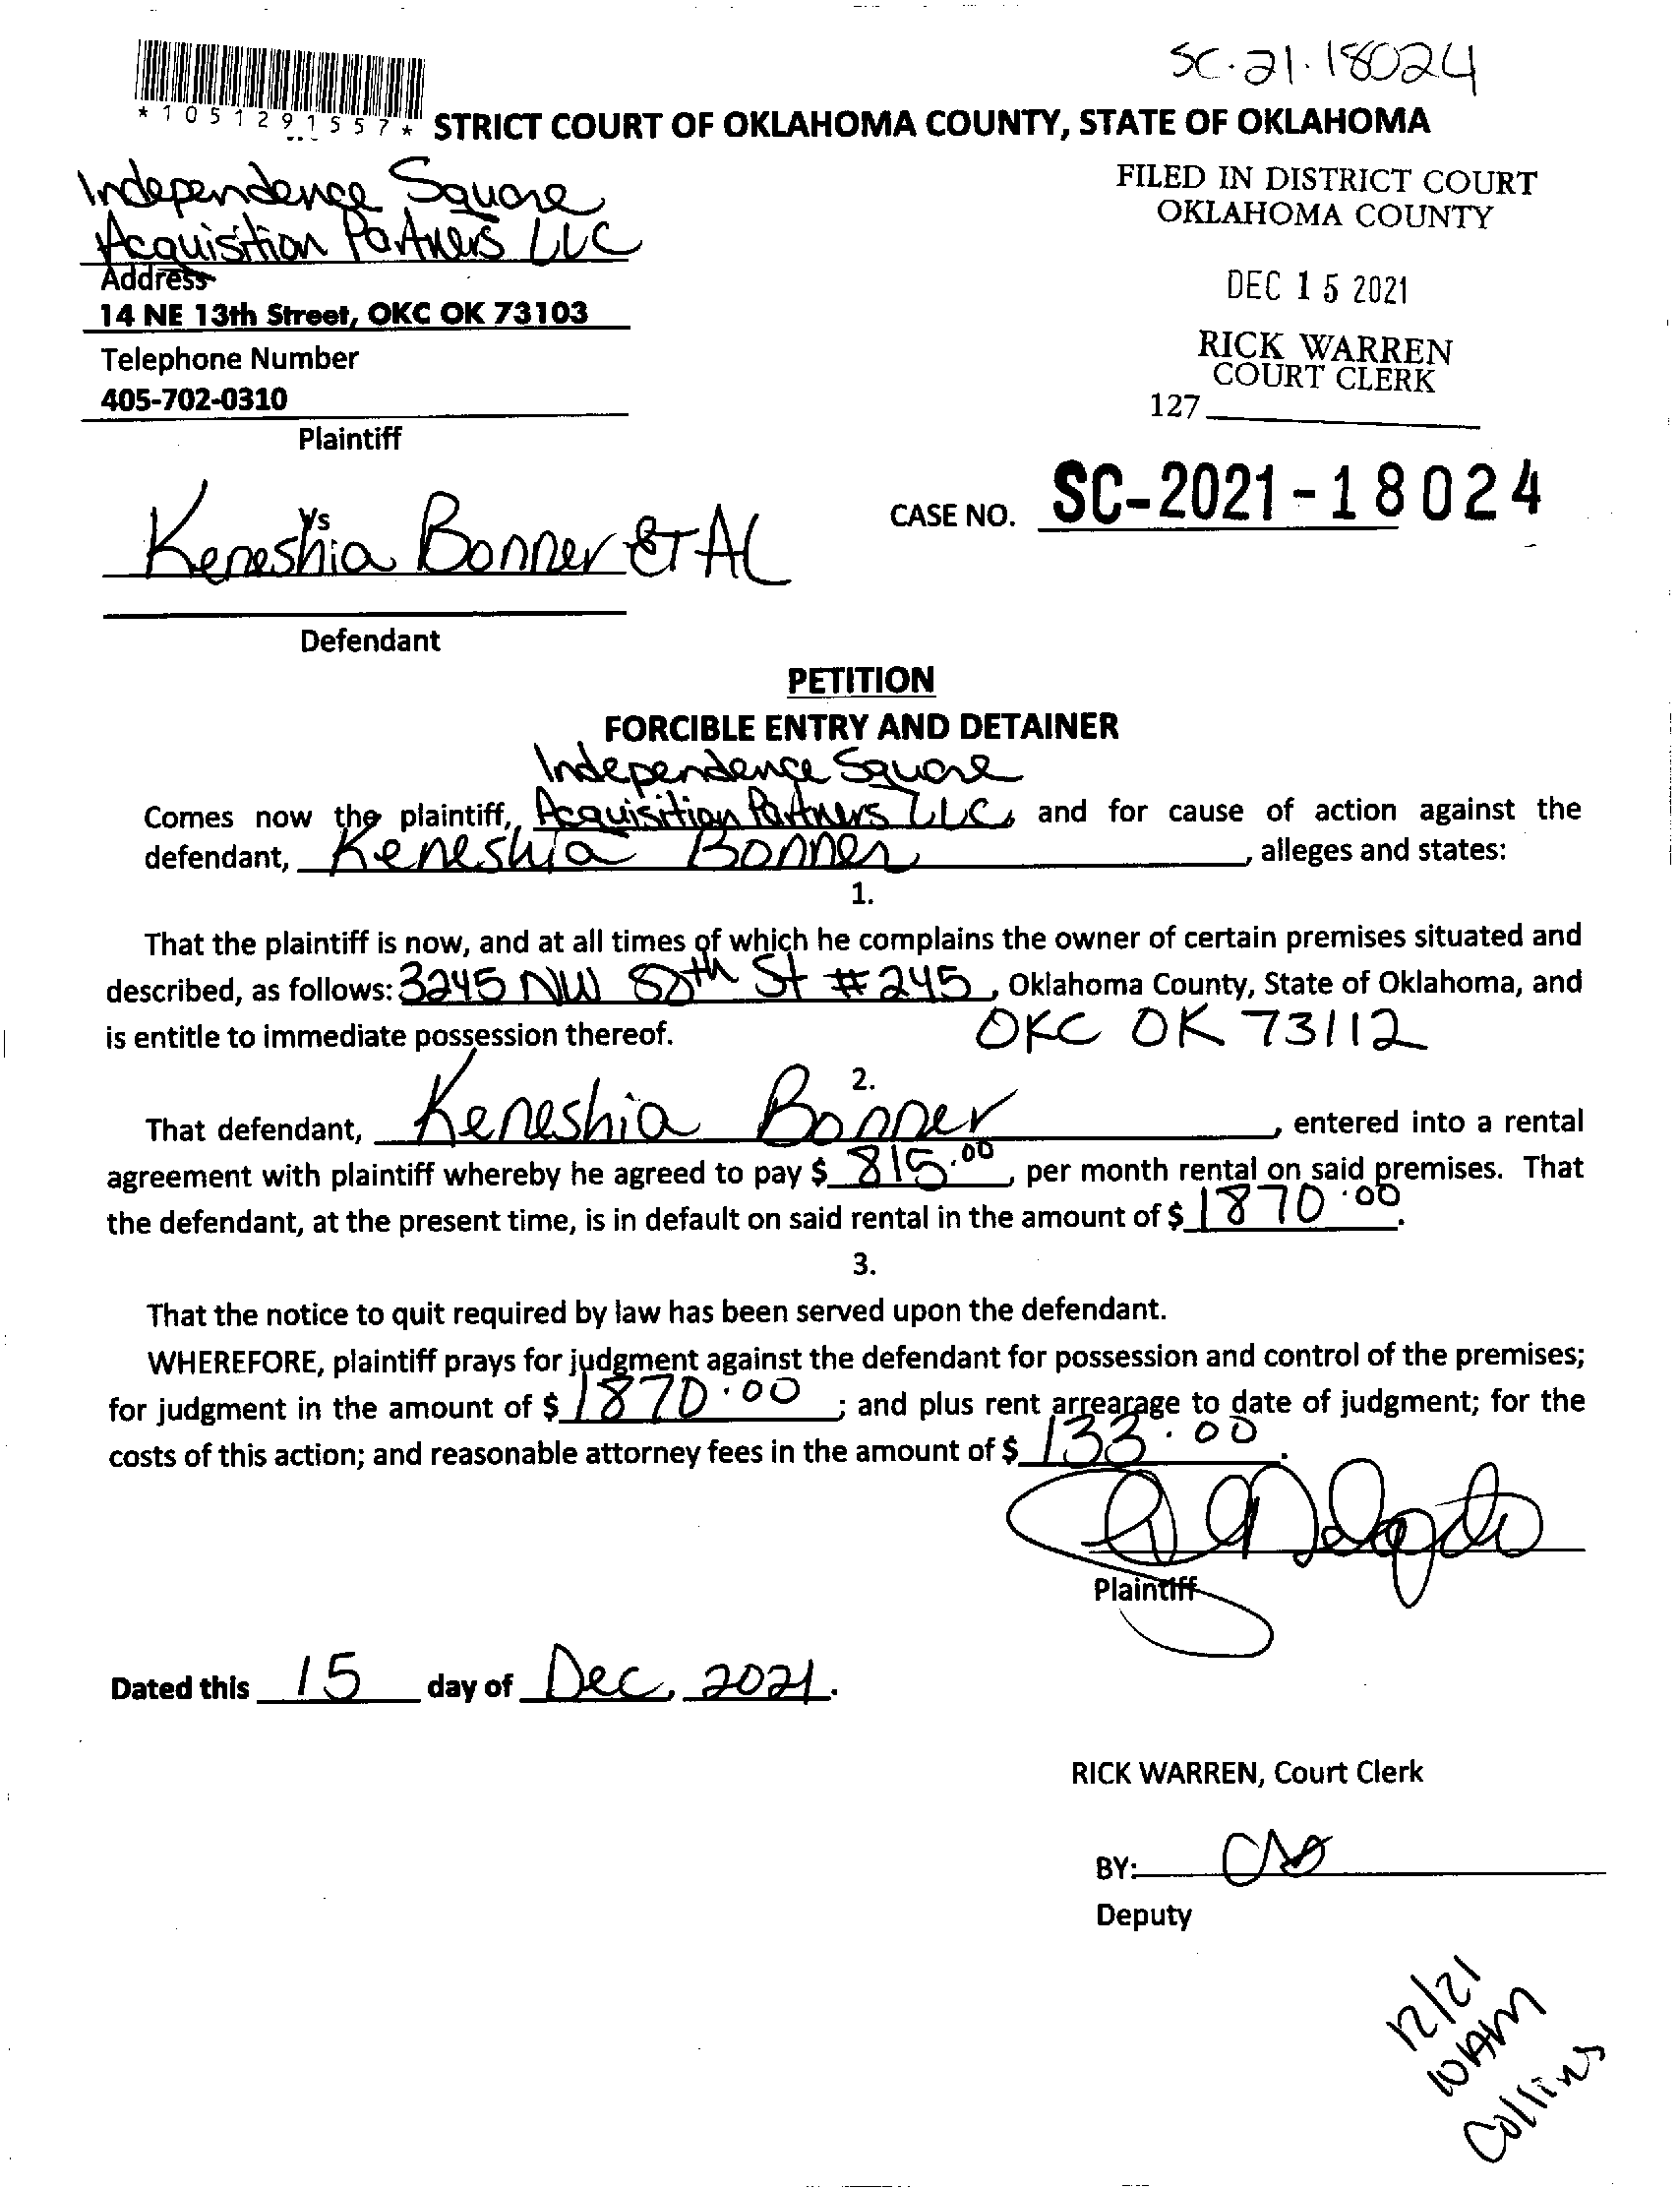 SC-21-18024
*1051291557* STRICT COURT OF OKLAHOMA COUNTY, STATE OF OKLAHOMA
Independence Square
Acquisition Partners LLC
Address
14 NE 13th Street, OKC OK 73103
Telephone Number
405-702-0310
Plaintiff
FILED IN DISTRICT COURT
OKLAHOMA COUNTY
DEC 15 2021
RICK WARREN
COURT CLERK
127
Vs
Keneshia Bonner ET AL
Defendant
CASE NO. SC-2021-18024
PETITION
FORCIBLE ENTRY AND DETAINER
Independence Square
Comes now the plaintiff, Acquisition Partners LLC, and for cause of action against the
defendant, Keneshia Bonner, alleges and states:
1.
That the plaintiff is now, and at all times of which he complains the owner of certain premises situated and
described, as follows: 3245 NW 50th St #245, Oklahoma County, State of Oklahoma, and
is entitle to immediate possession thereof. OKC OK 73112
2.
That defendant, Keneshia Bonner, entered into a rental
agreement with plaintiff whereby he agreed to pay $ 815.00, per month rental on said premises. That
the defendant, at the present time, is in default on said rental in the amount of $ 1870.00.
3.
That the notice to quit required by law has been served upon the defendant.
WHEREFORE, plaintiff prays for judgment against the defendant for possession and control of the premises;
for judgment in the amount of $ 1870.00; and plus rent arrearage to date of judgment; for the
costs of this action; and reasonable attorney fees in the amount of $ 133.00.
Plaintiff
Dated this 15 day of Dec, 2021.
RICK WARREN, Court Clerk
BY:
Deputy
12/21
10AM
Collins